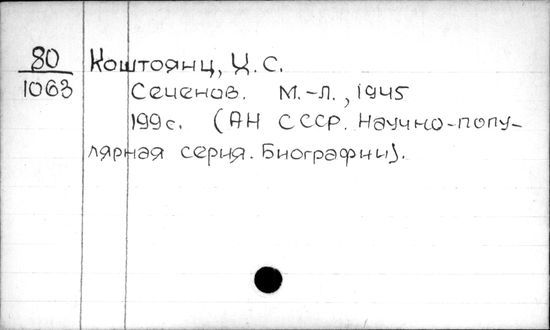 80
1063
Коштоянц, Х. С.
Сеченов. М.-Л., 1945
199с. (АН СССР. Научно-попу-
лярная серия. Биографии).